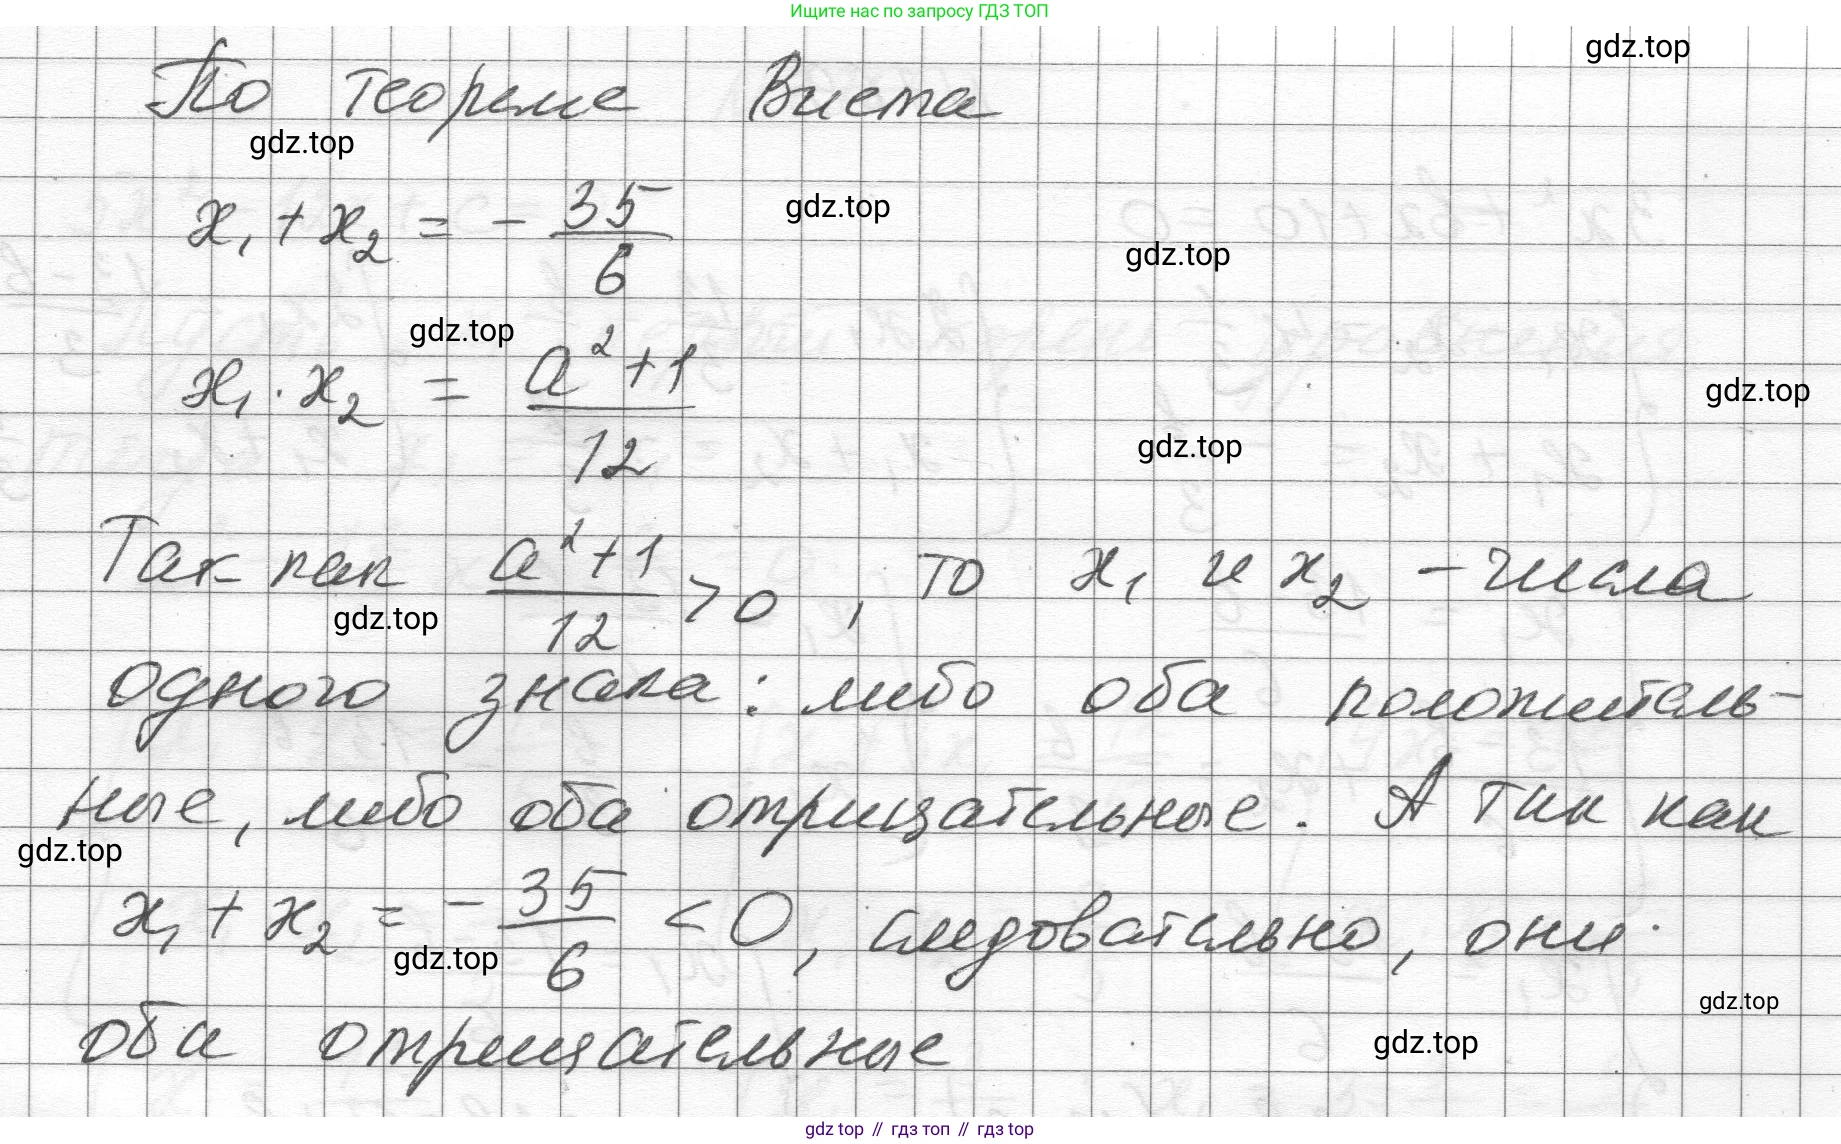 Ищите нас по запросу ГДЗ ТОП
gdz.top
По теореме Виета
gdz.top
x₁ + x₂ = - 35/6
gdz.top
gdz.top
gdz.top
x₁ · x₂ = a² + 1 / 12
gdz.top
gdz.top
Так как a² + 1 / 12 > 0, то x₁ и x₂ - числа
gdz.top
одного знака: либо оба положитель-
ные, либо оба отрицательные. А так как
gdz.top
x₁ + x₂ = - 35/6 < 0, следовательно, они
gdz.top
gdz.top
оба отрицательные
gdz.top
gdz.top // гдз топ // гдз top